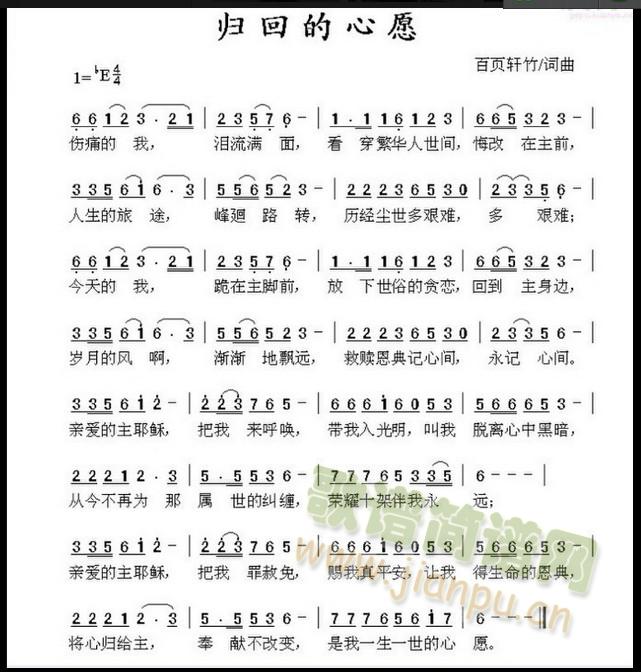 归回的心愿
百页轩竹/词曲
1=♭E 4/4
6 6 1 2 3 · 2 1 | 2 3 5 7 6 – | 1 · 1 1 6 1 2 3 | 6 6 5 3 2 3 – |
伤痛的 我， 泪流满 面， 看 穿繁华人世间，悔改 在主前，
3 3 5 6 i 6 · 3 | 5 5 6 5 2 3 – | 2 2 2 3 6 5 3 0 | 2 3 3 5 6 – |
人生的旅 途， 峰廻 路 转， 历经尘世多艰难， 多 艰难；
6 6 1 2 3 · 2 1 | 2 3 5 7 6 – | 1 · 1 1 6 1 2 3 | 6 6 5 3 2 3 – |
今天的 我， 跪在主脚前， 放 下世俗的贪恋，回到 主身边，
3 3 5 6 i 6 · 3 | 5 5 6 5 2 3 – | 2 2 2 3 6 5 3 0 | 5 6 5 6 – |
岁月的风 啊， 渐渐 地飘远， 救赎恩典记心间， 永记 心间。
3 3 5 6 i 2 – | 2 2 3 7 6 5 – | 6 6 6 i 6 0 5 3 | 5 6 6 6 5 3 – |
亲爱的主耶稣， 把我 来呼唤， 带我入光明，叫我 脱离心中黑暗，
2 2 2 1 2 · 3 | 5 · 5 5 3 6 – | 7 7 7 6 5 3 3 5 | 6 – – – |
从今不再为 那 属 世的纠缠， 荣耀十架伴我永 远；
3 3 5 6 i 2 – | 2 2 3 7 6 5 – | 6 6 6 i 6 0 5 3 | 5 6 6 6 5 3 – |
亲爱的主耶稣， 把我 罪赦免， 赐我真平安，让我 得生命的恩典，
2 2 2 1 2 · 3 | 5 · 5 5 3 6 – | 7 7 7 6 5 6 i 7 | 6 – – – ‖
将心归给主， 奉 献不改变， 是我一生一世的心 愿。
歌谱简谱网
www.jianpu.cn